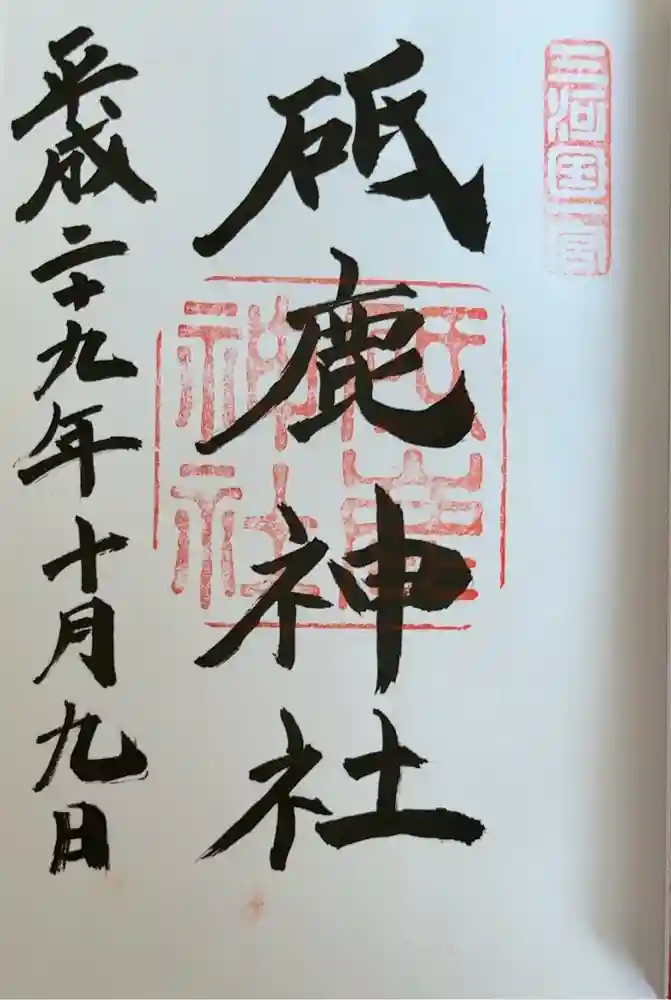 三河国一宮
砥鹿神社
平成二十九年十月九日
砥鹿
神社